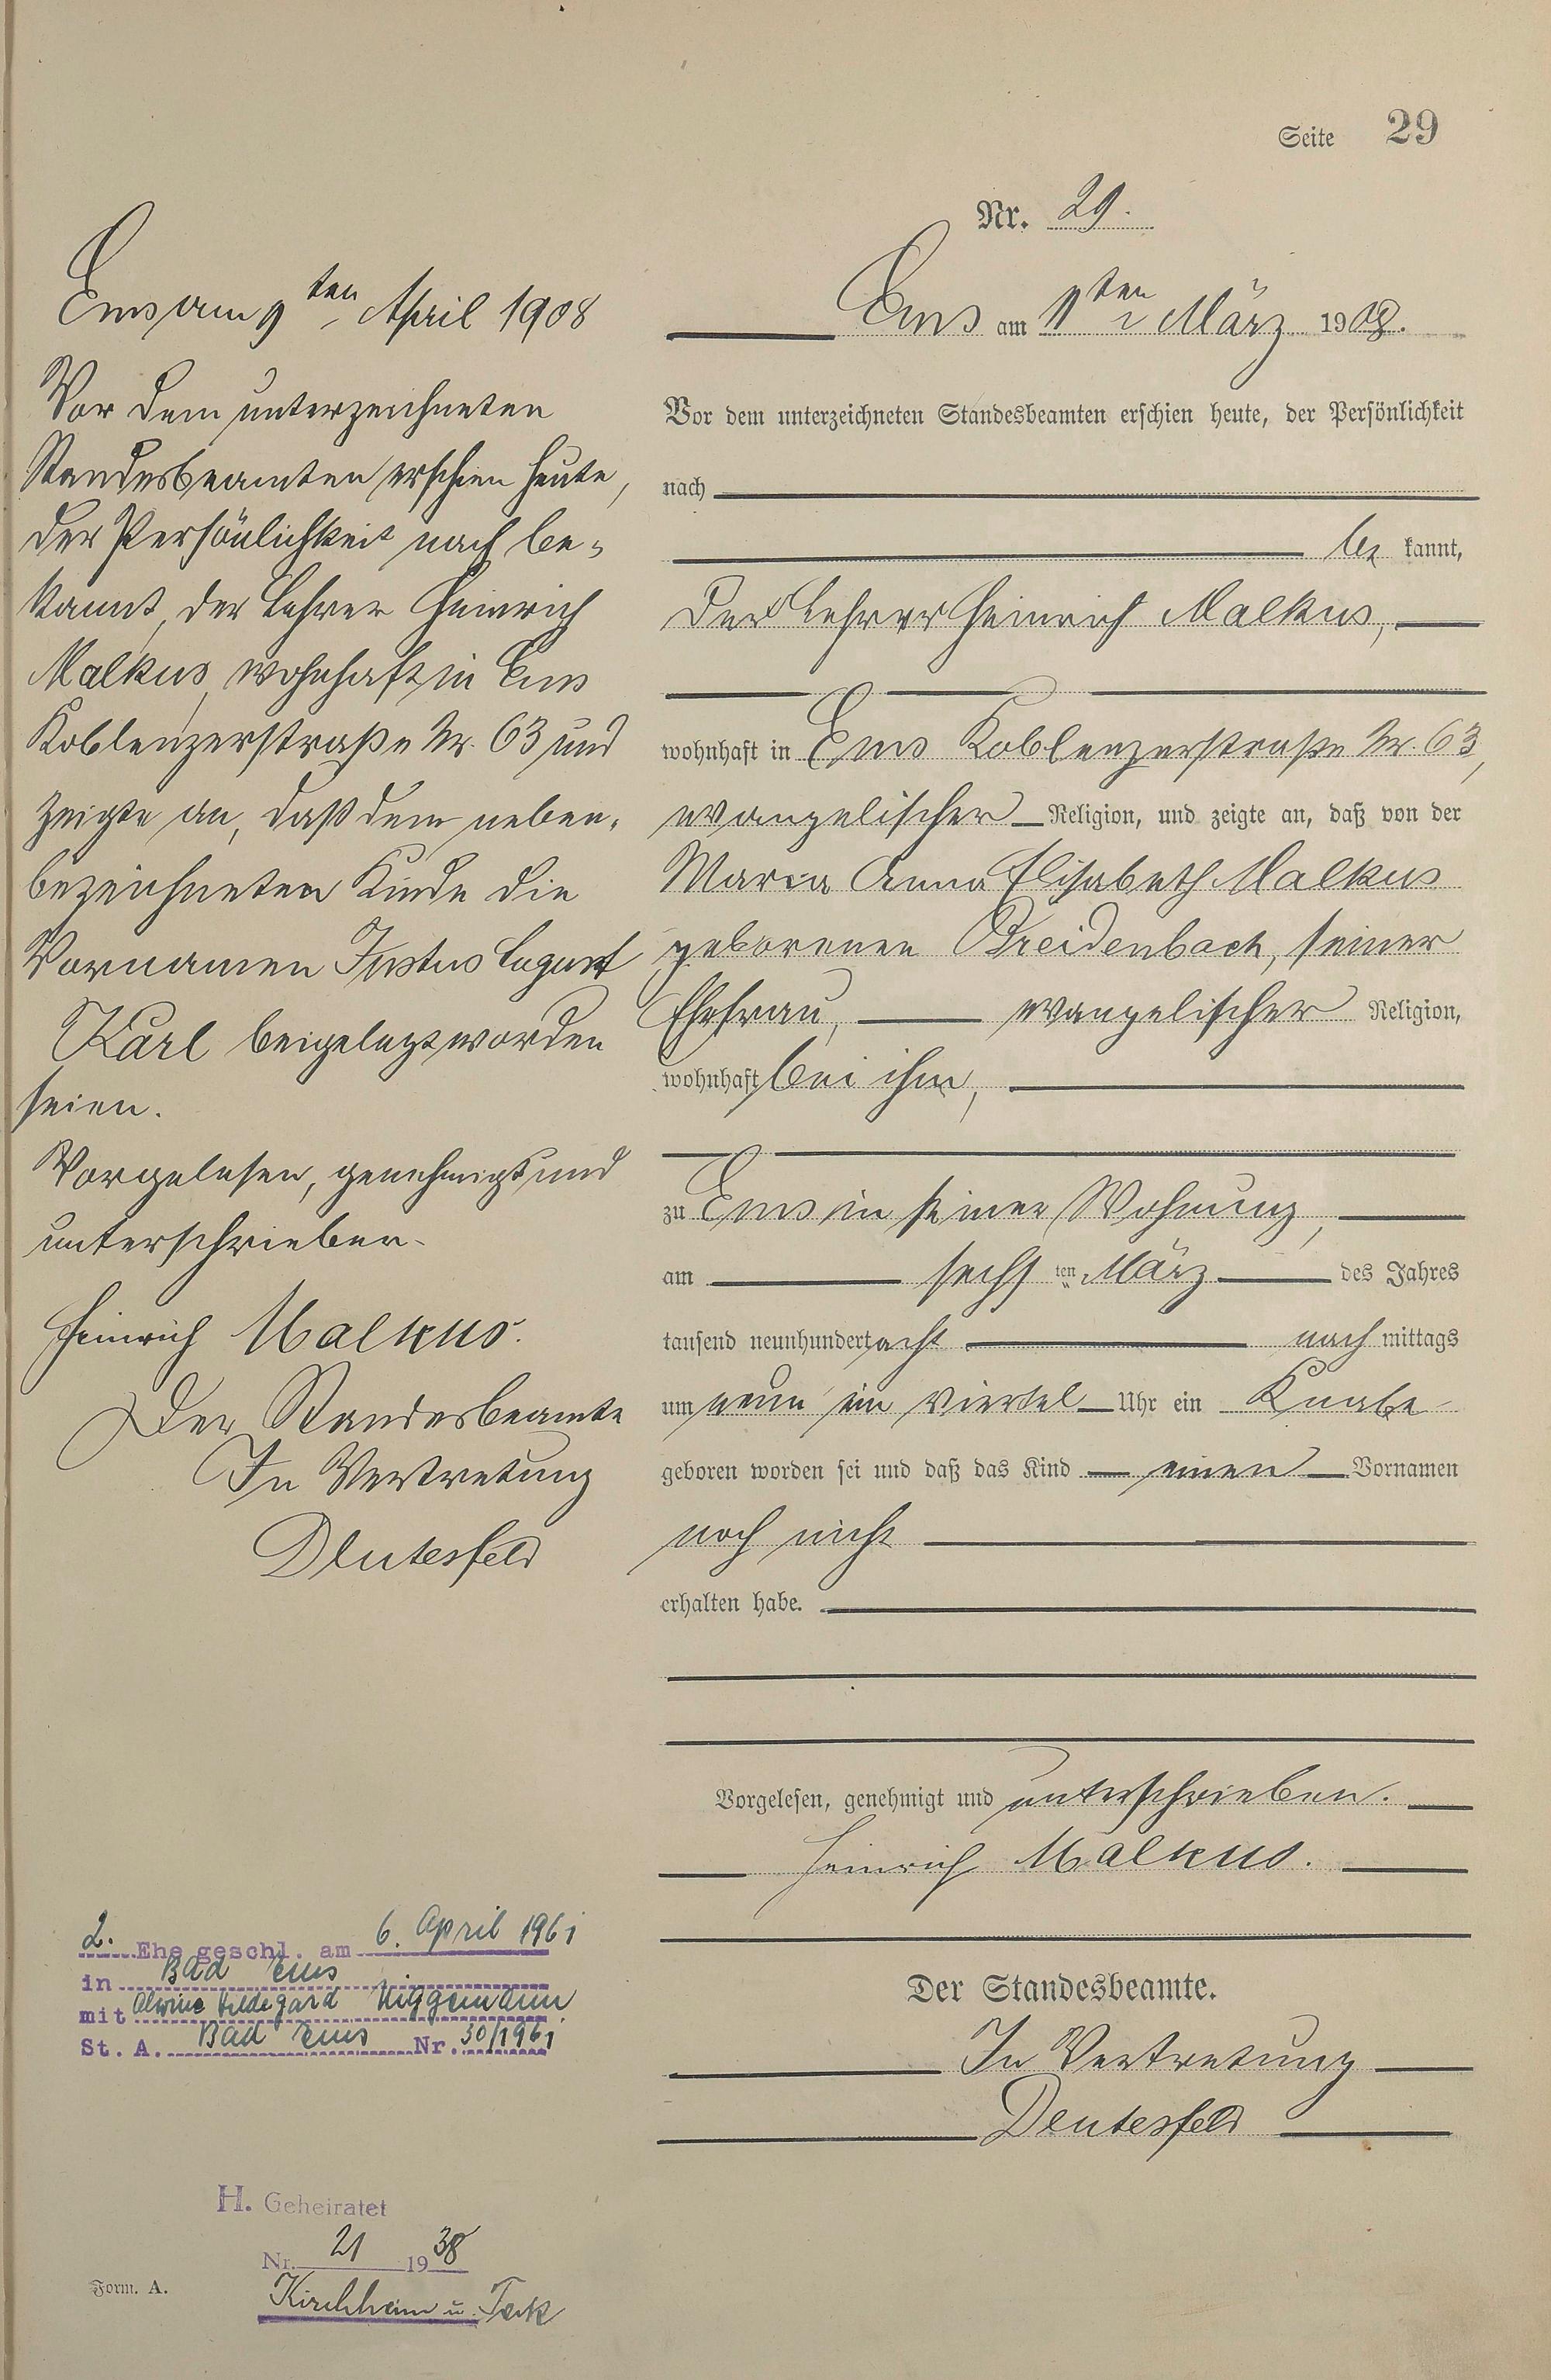 Seite 29
Nr. 29.
Ems am ten März 1908.
Vor dem unterzeichneten Standesbeamten erschien heute, der Persönlichkeit
nach
be kannt,
der Lehrer Heinrich Malkus,
wohnhaft in Ems Koblenzerstraße Nr. 63,
evangelischer Religion, und zeigte an, daß von der
Maria Anna Elisabeth Malkus
geborenen Breidenbach, seiner
Ehefrau, evangelischer Religion,
wohnhaft bei ihm,
zu Ems in seiner Wohnung,
am sechs ten März des Jahres
tausend neunhundert acht nach mittags
um neun ein viertel Uhr ein Knabe
geboren worden sei und daß das Kind einen Vornamen
noch nicht
erhalten habe.
Vorgelesen, genehmigt und unterschrieben.
Heinrich Malkus.
Der Standesbeamte.
In Vertretung
Deutesfeld
Ems am 9ten April 1908
Vor dem unterzeichneten
Standesbeamten erschien heute,
der Persönlichkeit nach be-
kannt, der Lehrer Heinrich
Malkus, wohnhaft in Ems
Koblenzerstraße Nr. 63 und
zeigte an, daß dem neben-
bezeichneten Kinde die
Vornamen Justus August
Karl beigelegt worden
seien.
Vorgelesen, genehmigt und
unterschrieben.
Heinrich Malkus.
Der Standesbeamte
In Vertretung
Deutesfeld
2. Ehe geschl. am 6. April 1961
in Bad Ems
mit Alwine Hildegard Niggemann
St. A. Bad Ems Nr. 30/1961
H. Geheiratet
Nr. 21 1938
Kirchheim u. Teck
Form. A.